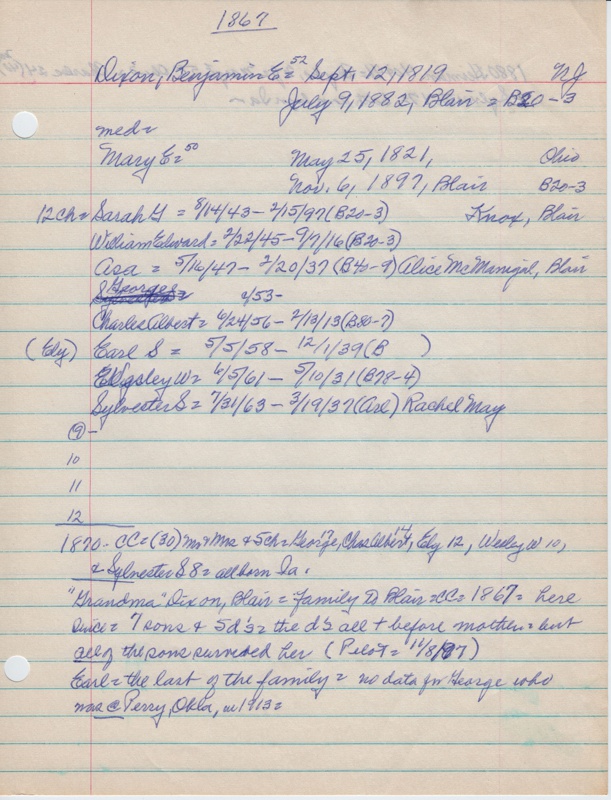 1867
Dixon, Benjamin E = 52 Sept. 12, 1819 NJ
July 9, 1882, Blair = B20-3
med =
Mary E = 50 May 25, 1821, Ohio
Nov. 6, 1897, Blair B20-3
12 ch = Sarah Y = 8/14/43 - 2/15/97 (B20-3) Knox, Blair
William Edward = 2/22/45 - 9/7/16 (B20-3)
Asa = 5/16/47 - 2/20/37 (B40-9) Alice McManigal, Blair
George /53 -
Charles Albert = 6/24/56 - 2/13/13 (B80-7)
(Ely) Earl S = 5/5/58 - 12/1/39 (B )
W = 6/5/61 - 5/10/31 (B78-4)
Sylvester S = 7/31/63 - 3/19/37 (Arl) Rachel May
9 -
10
11
12
1870 - CC = (30) mr & mrs & 5 ch = George 17, Chas Albert 14, Ely 12, Wesley W 10,
& Sylvester S 8 = all born Ia.
"Grandma" Dixon, Blair = family to Blair = CC = 1867 = here
since = 7 sons & 5 d's = the d's all + before mother = but
all of the sons survived her (Pilot = 11/8/97)
Earl = the last of the family = no data for George who
was @ Perry, Okla, in 1913 =